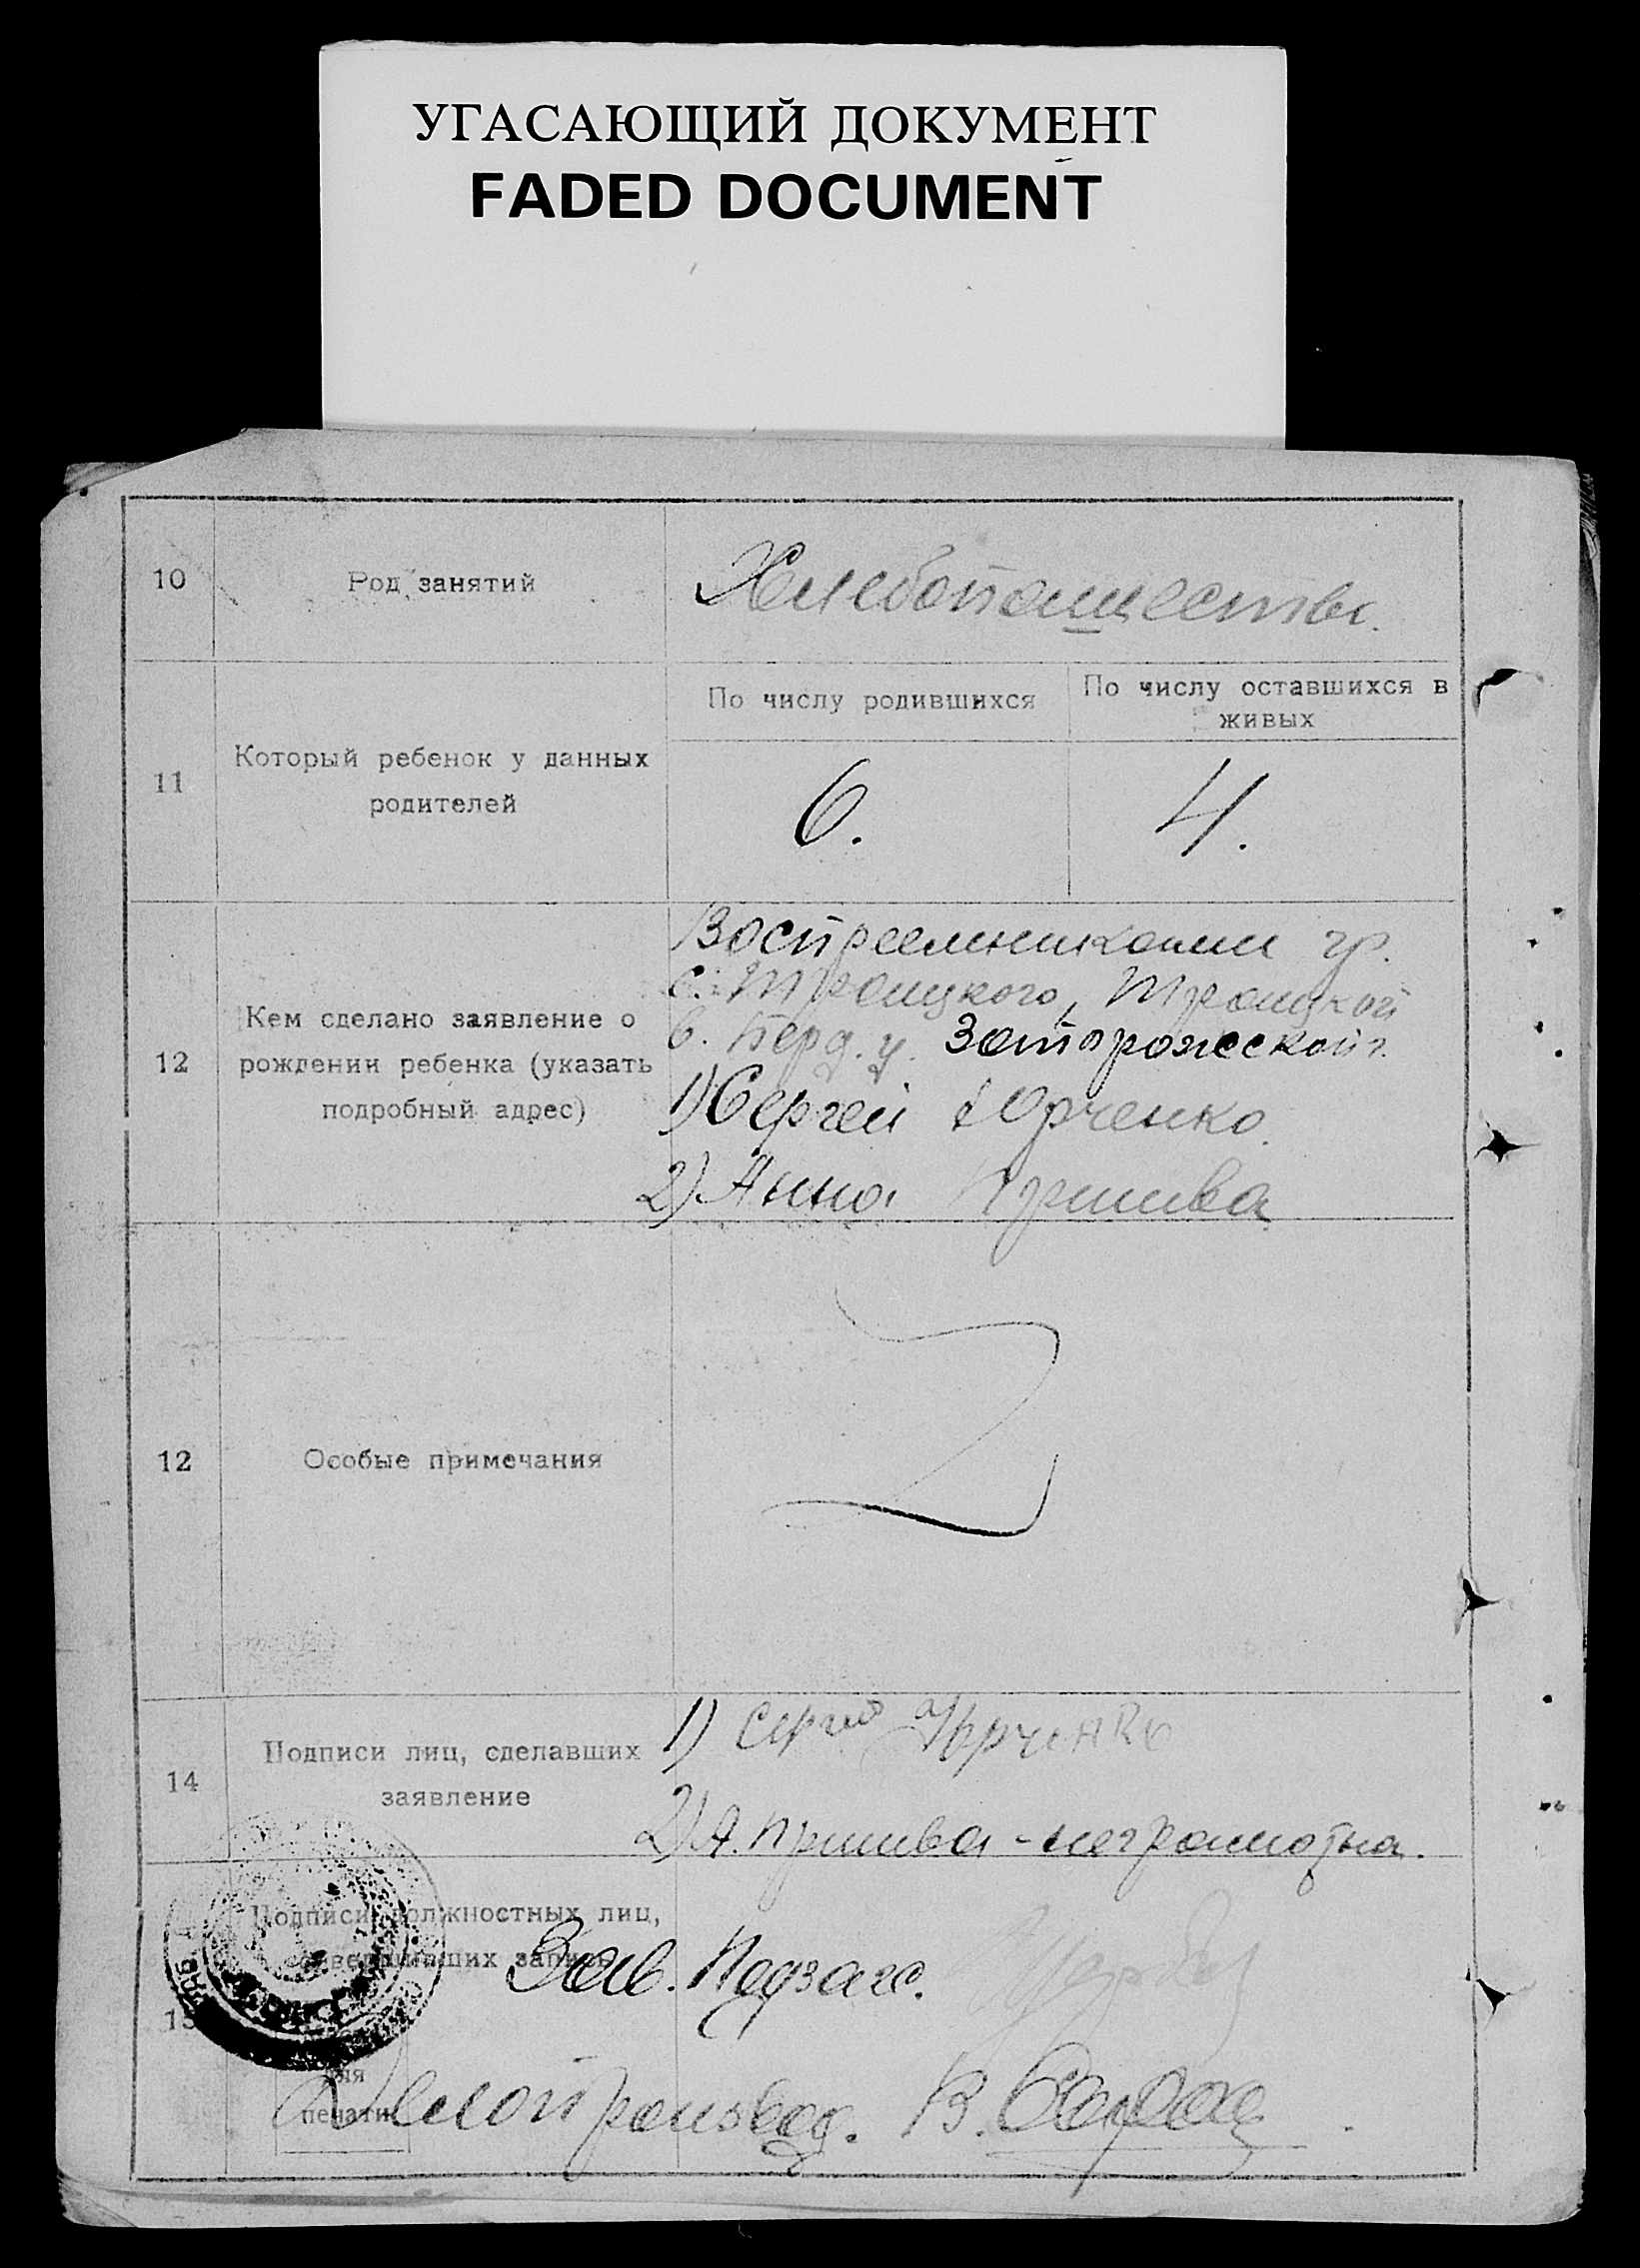 УГАСАЮЩИЙ ДОКУМЕНТ
FADED DOCUMENT
10 Род занятий Хлебопашество.
По числу родившихся
По числу оставшихся в
живых
11 Который ребенок у данных
родителей
6. 4.
12 Кем сделано заявление о
рождении ребенка (указать
подробный адрес)
Восприемниками гр.
с. Троицкого, Троицкой
в. Берд. у. Запорожской г.
1) Сергей Юрченко.
2) Анна
12 Особые примечания
14 Подписи лиц, сделавших
заявление
1) Юрченко
2) А. - неграмотна.
15 Подписи должностных лиц,
совершивших запись
Зав. Подзагс.
для
печати
Делопроизвод. В.